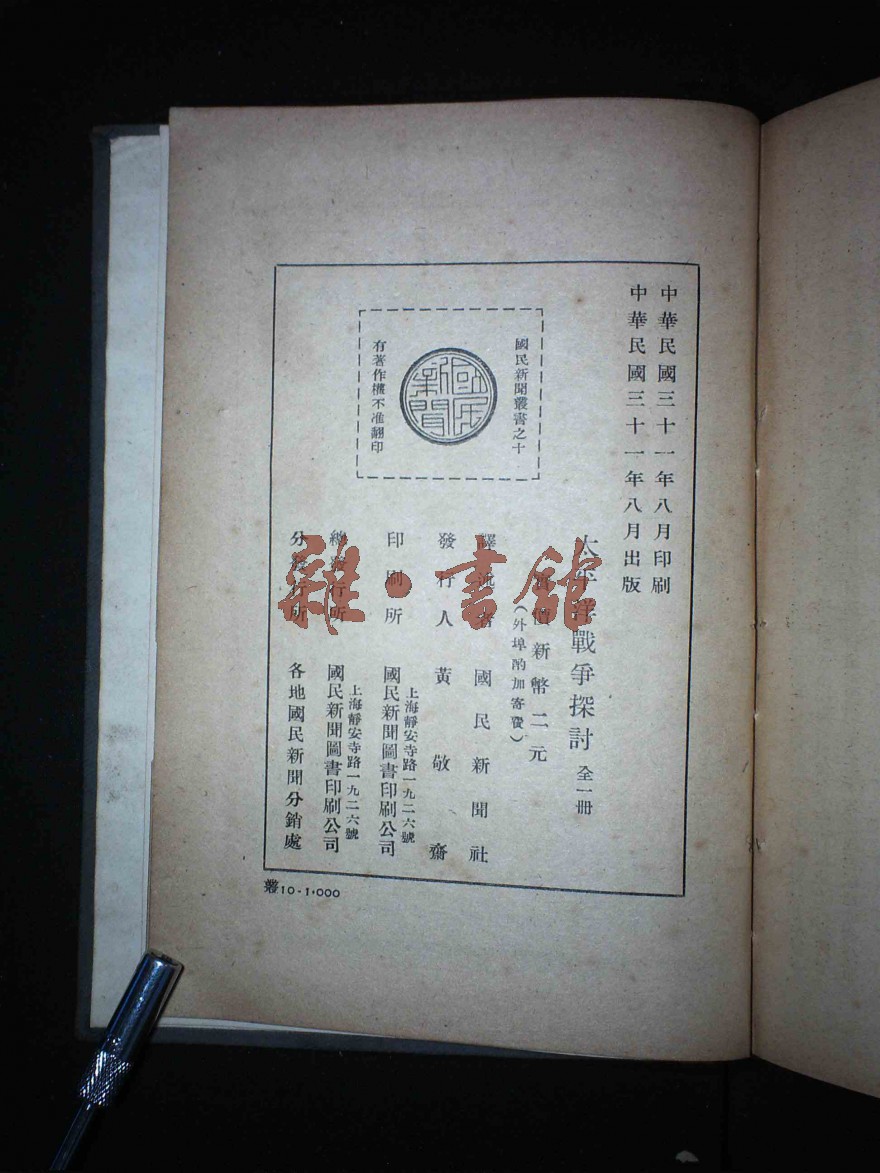 中華民國三十一年八月印刷
中華民國三十一年八月出版
太平洋戰爭探討 全一冊
實價新幣二元
(外埠酌加寄費)
譯述者 國民新聞社
發行人 黃敬齋
印刷所 國民新聞圖書印刷公司
上海靜安寺路一九二六號
總發行所 國民新聞圖書印刷公司
上海靜安寺路一九二六號
分發行所 各地國民新聞分銷處
國民新聞叢書之十
國民新聞
有著作權不准翻印
叢10-1,000
雜·書館